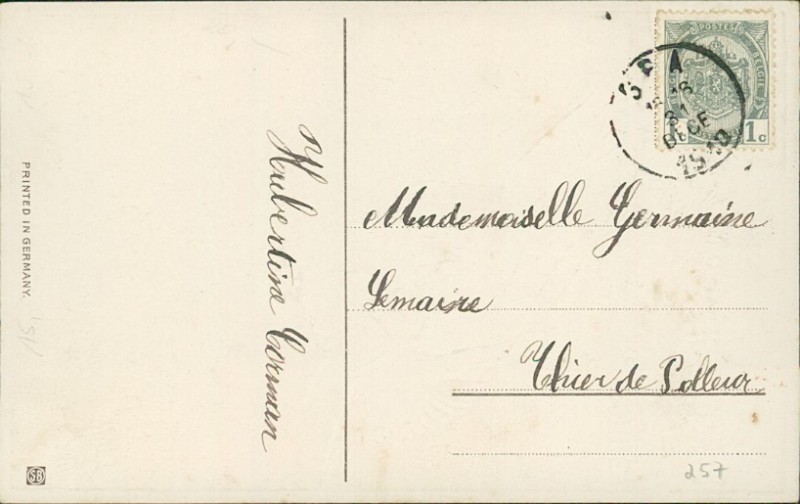 PRINTED IN GERMANY.
Hubertine Corman
POSTES
BELGIE
1c
SPA
31
DECE
1910
Mademoiselle Germaine
Lemaire
Thier de Polleur
257
SB